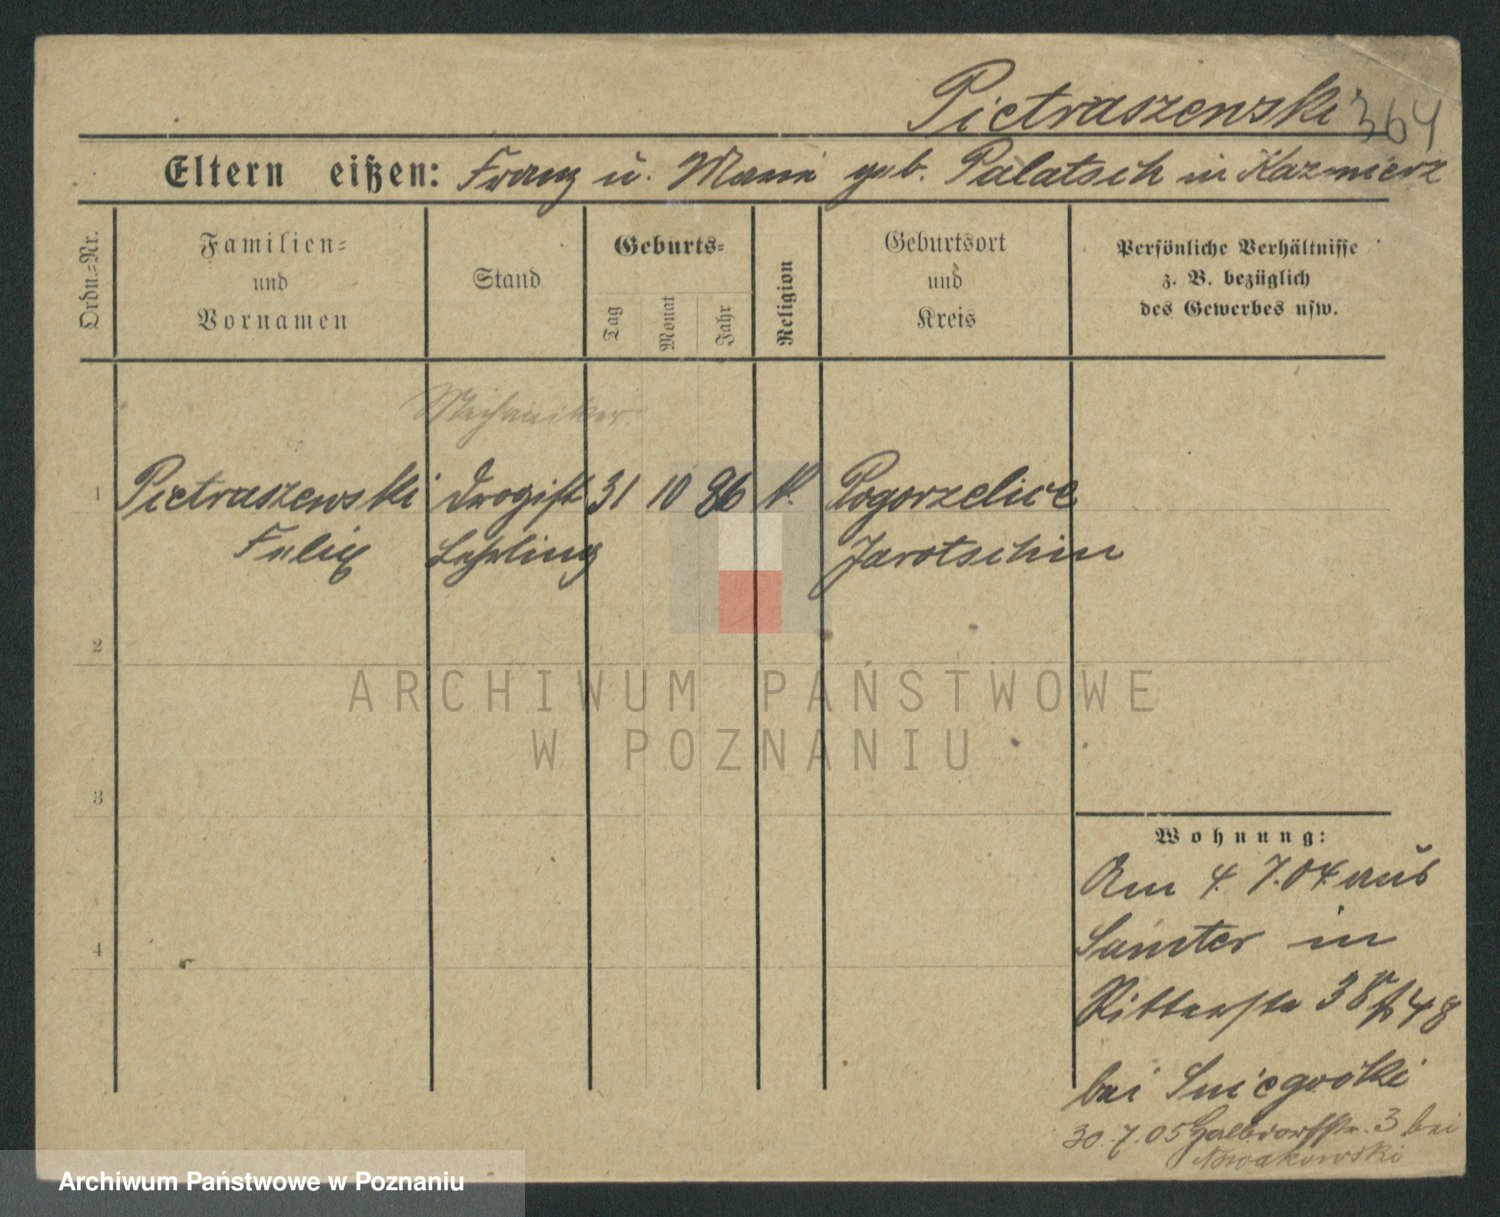 Pietraszewski 364
Eltern eißen: Franz u. Marie geb. Palatsch in Kazmierz
Ordn.=Nr.
Familien=
und
Vornamen
Stand
Geburts=
Tag
Monat
Jahr
Religion
Geburtsort
und
Kreis
Persönliche Verhältnisse
z. B. bezüglich
des Gewerbes usw.
Mechaniker
1 Pietraszewski Drogist 31 10 86 k. Pogorzelice
Felix Lehrling Jarotschin
2
3
4
Wohnung:
Am 4. 7. 04 aus
Samter in
Ritterstr 38
bei Sniegocki
30. 7. 05 Halbdorfstr. 3 bei
Nowakowski
ARCHIWUM PAŃSTWOWE
W POZNANIU
Archiwum Państwowe w Poznaniu